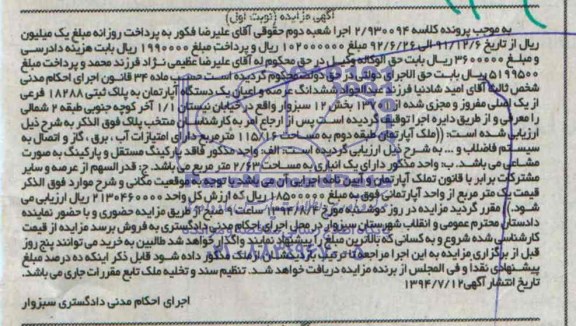 آگهی مزایده (نوبت اول)
به موجب پرونده کلاسه ۲/۹۳۰۰۹۴ اجرا شعبه دوم حقوقی آقای علیرضا فکور به پرداخت روزانه مبلغ یک میلیون
ریال از تاریخ ۹۱/۱۲/۶ الی ۹۲/۶/۲۶ مبلغ ۱۰۲۰۰۰۰۰۰ ریال و پرداخت مبلغ ۱۹۹۰۰۰۰ ریال بابت هزینه دادرسی
و مبلغ ۳۶۰۰۰۰۰ ریال بابت حق الوکاله وکیل در حق محکوم له آقای علیرضا عظیمی نژاد فرزند محمد و پرداخت مبلغ
۵۱۹۹۵۰۰ ریال بابت حق الاجرای دولتی در حق دولت محکوم گردیده است حسب ماده ۳۴ قانون اجرای احکام مدنی
شخص ثالث آقای امید شادنیا فرزند عبدالجواد ششدانگ عرصه و اعیان یک دستگاه آپارتمان به پلاک ثبتی ۱۸۲۸۸ فرعی
از یک اصلی مفروز و مجزی شده از ۱۳ بخش ۱۲ سبزوار واقع در خیابان بیستان ۱/۱ آخر کوچه جنوبی طبقه ۲ شمالی
را معرفی و از طریق دایره اجرا توقیف گردیده است پس از ارجاع امر به کارشناسان منتخب پلاک فوق الذکر به شرح ذیل
ارزیابی شده است: ((ملک آپارتمان طبقه دوم به مساحت ۱۱۵/۱۶ مترمربع دارای امتیازات آب، برق، گاز و اتصال به
سیستم فاضلاب و ... به شرح ذیل ارزیابی گردیده است: الف: واحد مذکور فاقد پارکینگ مستقل و پارکینگ به صورت
مشاعی می باشد. ب: واحد مذکور دارای یک انباری به مساحت ۲/۶۳ متر مربع می باشد. ج: قدرالسهم از عرصه و سایر
مشترکات برابر با قانون تملک آپارتمان و آیین نامه اجرایی آن می باشد با توجه به موقعیت مکانی و شرح موارد فوق الذکر
قیمت یک متر مربع از واحد آپارتمانی فوق به مبلغ ۱۸۵۰۰۰۰۰ ریال که ارزش کل واحد ۲۱۳۰۴۶۰۰۰۰ ریال ارزیابی می
شود.)) مقرر گردید مزایده در روز دوشنبه مورخ ۱۳۹۴/۸/۴ ساعت ۹ صبح از طریق مزایده حضوری و با حضور نماینده
دادستان محترم عمومی و انقلاب شهرستان سبزوار در محل اجرای احکام مدنی دادگستری به فروش برسد مزایده از قیمت
کارشناسی شده شروع و به کسانی که بالاترین مبلغ را پیشنهاد نمایند واگذار خواهد شد طالبین به خرید می توانند پنج روز
قبل از برگزاری مزایده به این اجرا مراجعه تا ترتیب بازدیدشان از ملک مذکور داده شود قابل ذکر اینکه ده درصد مبلغ
پیشنهادی نقدا و فی المجلس از برنده مزایده دریافت خواهد شد. تنظیم سند و تخلیه ملک تابع مقررات جاری می باشد.
تاریخ انتشار آگهی ۱۳۹۴/۷/۱۲
اجرای احکام مدنی دادگستری سبزوار